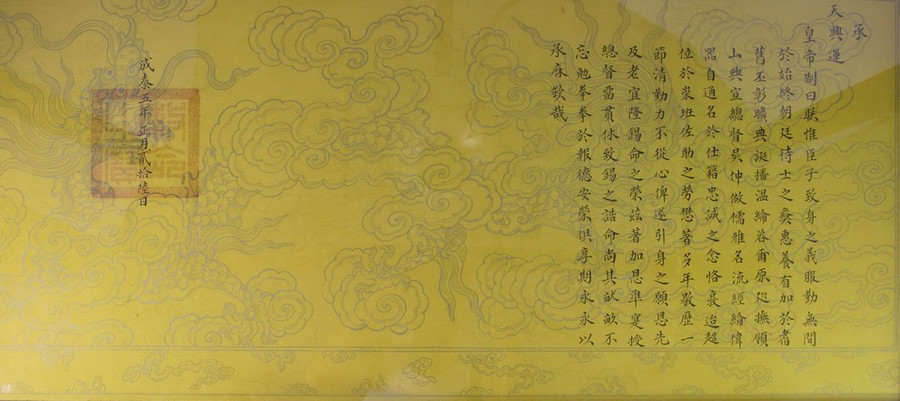 承
天興運
皇帝制曰朕惟臣子致身之義服勤無間
於始終朝廷待士之彝惠養有加於耆
舊丕彰曠典誕播溫綸咨爾原廵撫順
山興宣總督吳仲儆儒雅名流經綸偉
器自通名於仕籍忠誠之念恪襄迨超
位於崇班佐助之勞懋著多年敭歷一
節清勤力不從心俾遂引身之願恩先
及老宜隆錫命之榮茲著加恩準寔授
總督當貫休致錫之誥命尚其猷歒不
忘勉拳拳於報德安榮俱享期永永以
承庥欽哉
成泰五年正月貳拾陸日